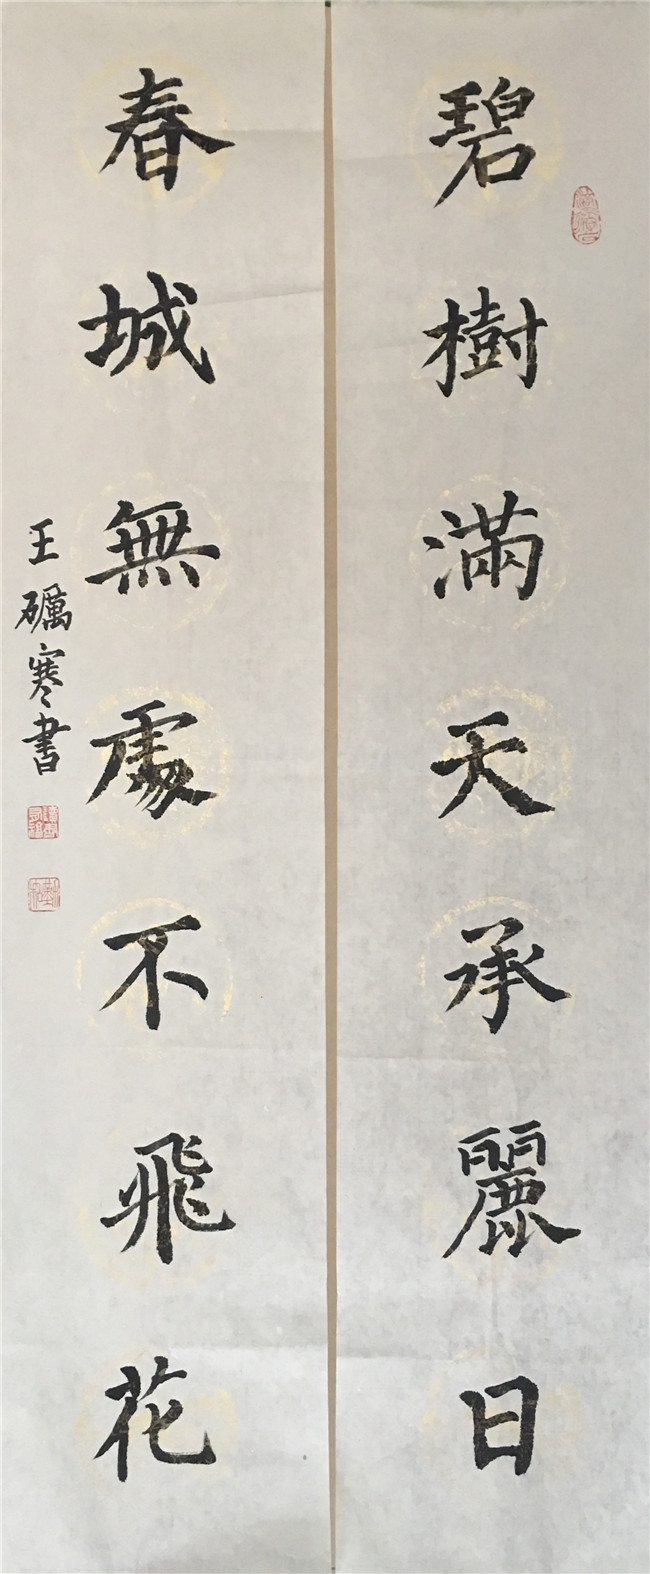 碧樹滿天承麗日
春城無處不飛花
王礪寒書